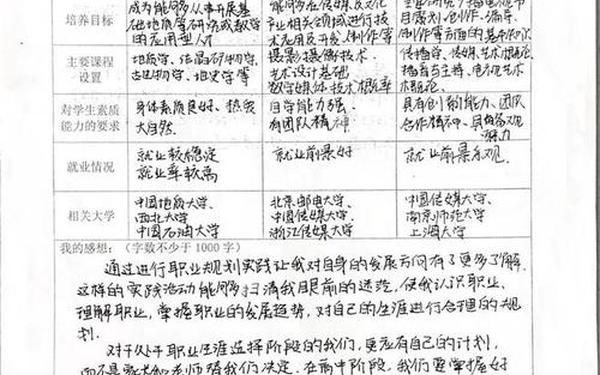 培养目标
成为能够从事开展基
础地质等研究或教学
的应用型人才
能够在传媒及文化
产业相关领域进行技
术应用及开发、制作等工作
目策划、创作、编导、
制作等方面的基本
主要课程
设置
地质学、结晶矿物学、
古生物学、地史学等
摄影摄像技术、
艺术设计基础
数字媒体技术概率
传播学、传媒艺术概论、
播音与主持、电视艺术
概论。
对学生素质
能力的要求
身体素质良好、热爱
大自然
自学能力强、
有团队精神
具有创新能力、团队
合作精神、具备客观
能力
就业情况
就业较稳定
就业率较高
就业前景好
就业前景乐观.
相关大学
中国地质大学、
西北大学
中国石油大学
北京邮电大学、
中国传媒大学、
浙江传媒大学
中国传媒大学
南京师范大学
上海大学
我的感想：(字数不少于 1000 字)
通过进行职业规划实践让我对自身的发展方向有了更多了解.
这样的实践活动能够扫清我目前的迷茫，使我认识职业、
理解职业，掌握职业的发展趋势，对自己的生涯进行合理的规
划.
对于处于职业生涯选择阶段的我们，更应有自己的计划，
而不是家长和老师替我们决定. 在高中阶段，我们要掌握好